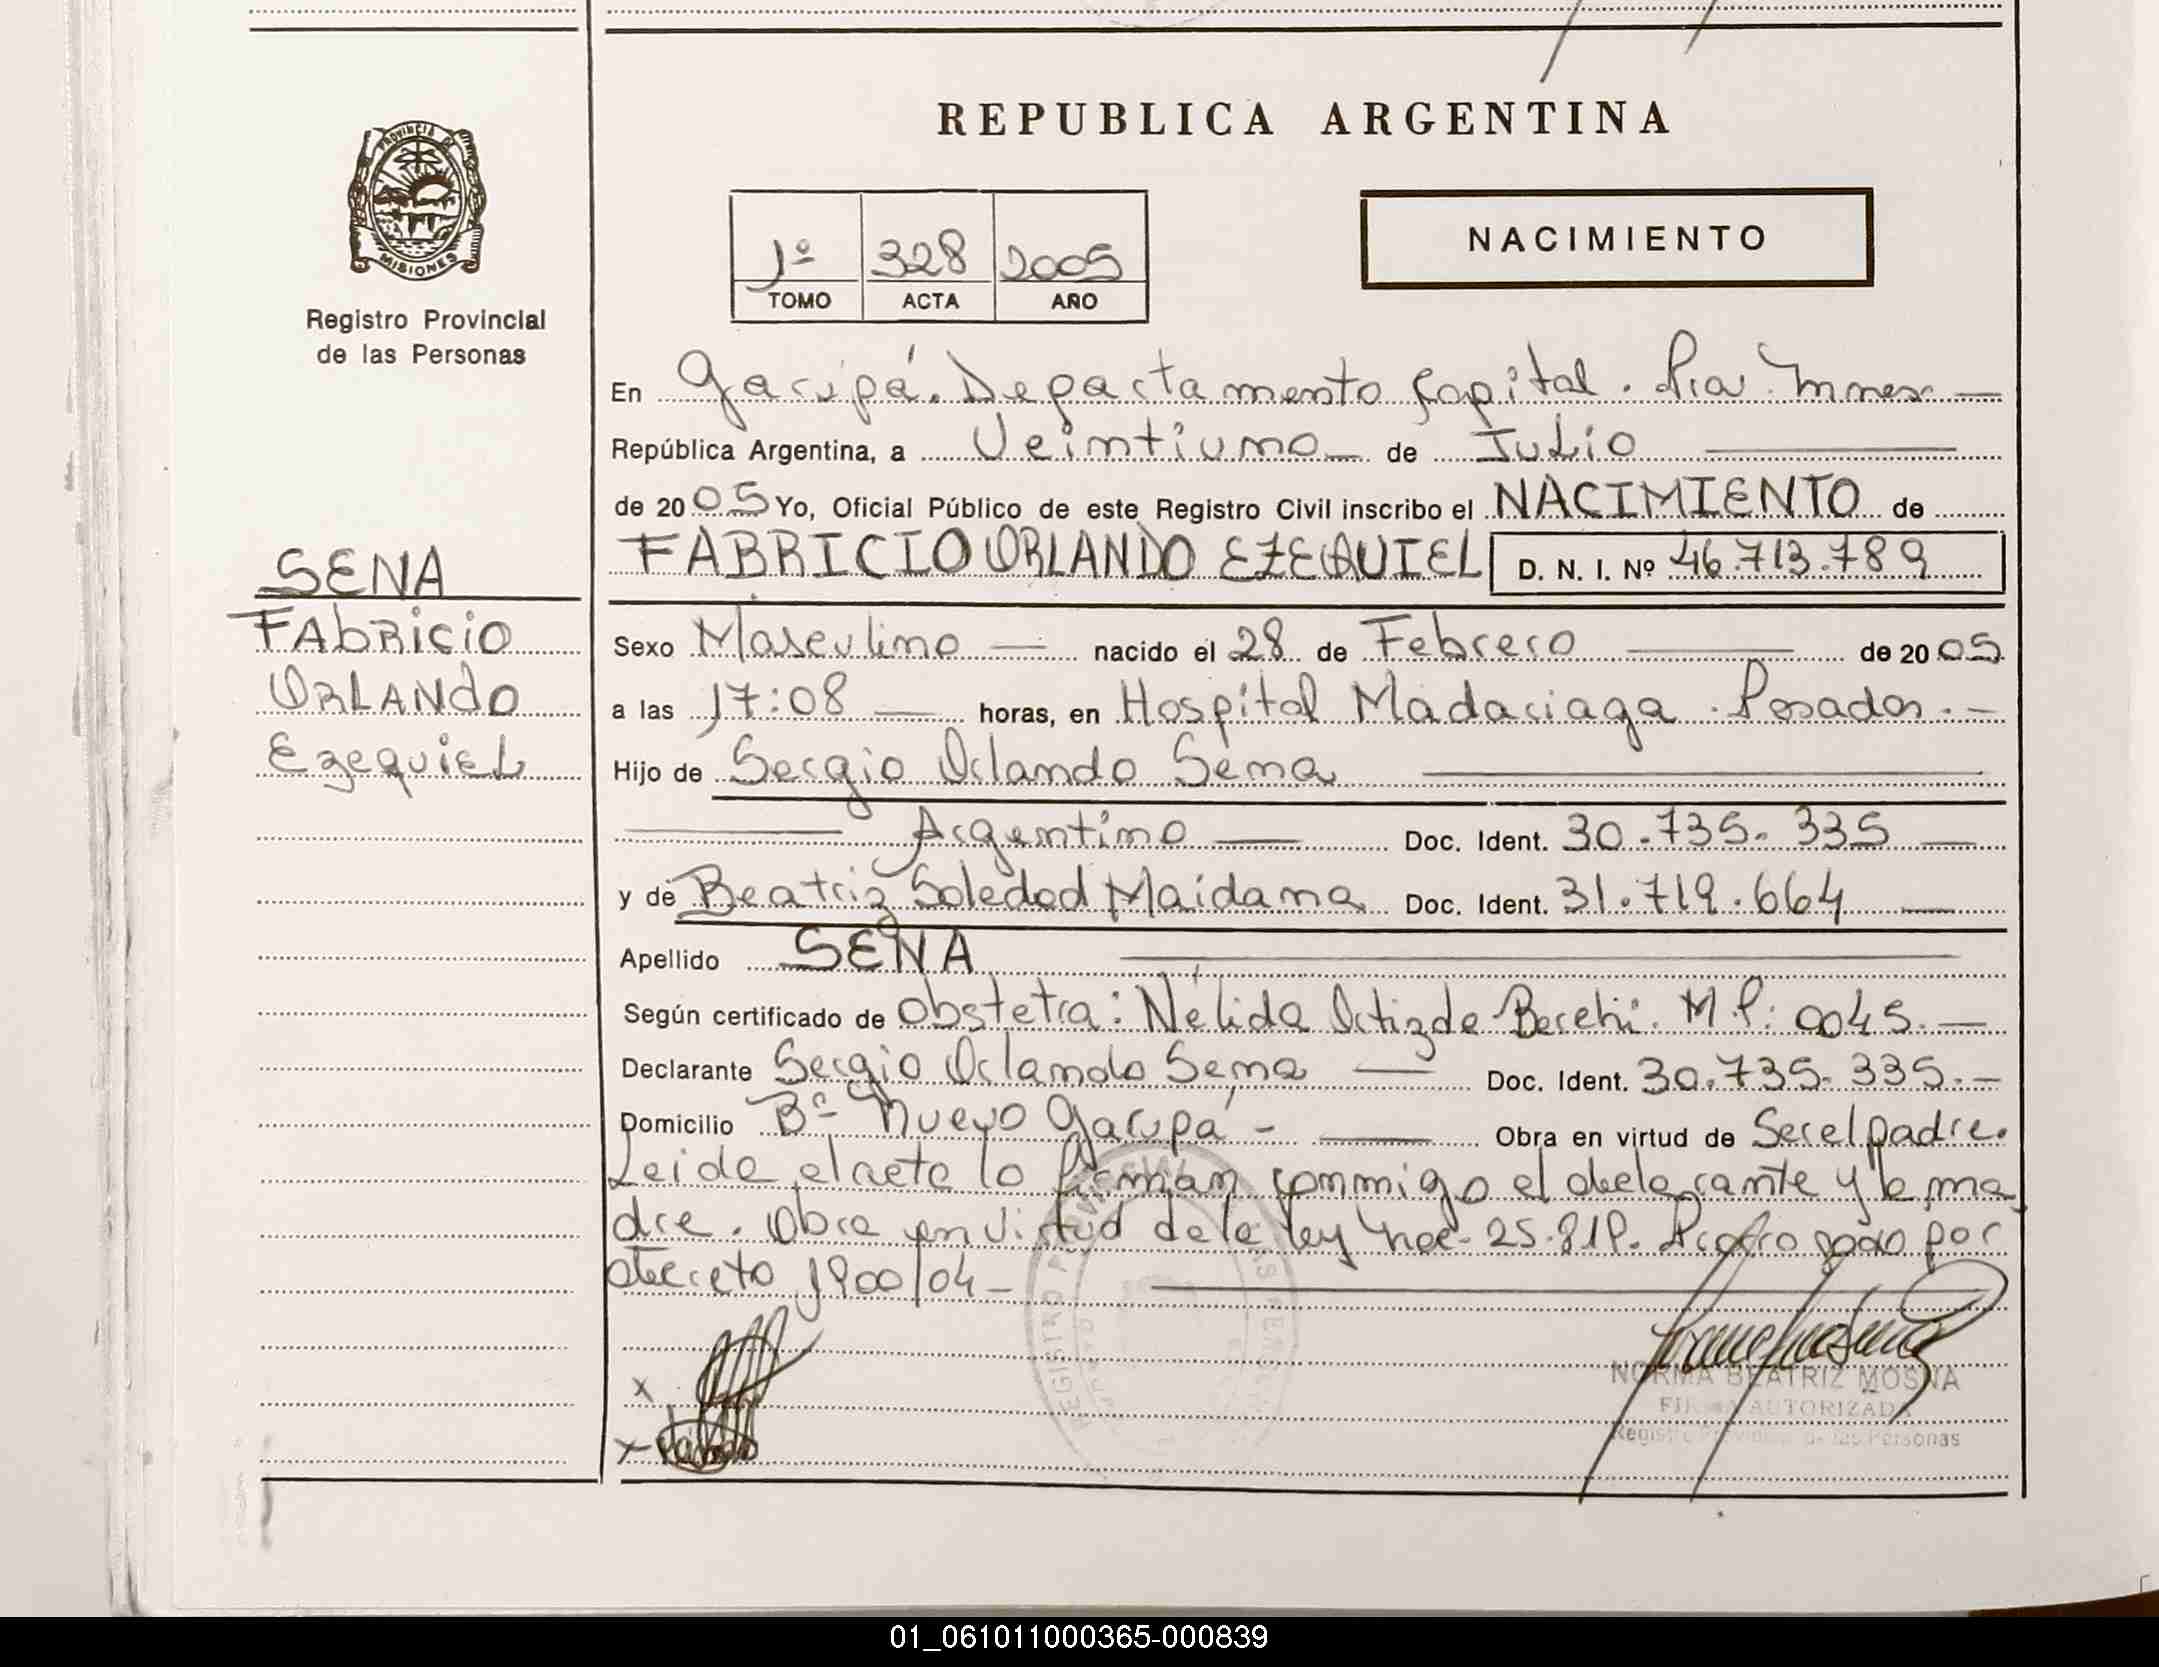 REPUBLICA ARGENTINA
PROVINCIA DE
MISIONES
Registro Provincial
de las Personas
1º 328 2005
TOMO ACTA AÑO
NACIMIENTO
En Garupá. Departamento Capital. Pia. Mnes
República Argentina, a Veintiuno de Julio
de 2005 Yo, Oficial Público de este Registro Civil inscribo el NACIMIENTO de
FABRICIO ORLANDO EZEQUIEL D. N. I. Nº 46.713.789
SENA
FAbRicio
ORLANdo
EzequieL
Sexo Masculino nacido el 28 de Febrero de 2005
a las 17:08 horas, en Hospital Madariaga. Posadas.
Hijo de Sergio Orlando Sena
Argentino Doc. Ident. 30.735.335
y de Beatriz Soledad Maidana Doc. Ident. 31.719.664
Apellido SENA
Según certificado de Obstetra: Nélida Ortiz de M.P: 0045.
Declarante Sergio Orlando Sena Doc. Ident. 30.735.335.
Domicilio Bº Nuevo Garupá - Obra en virtud de Ser el padre.
Leida el acta la firman conmigo el declarante y la ma
dre. Obra en virtud de la ley 25.819. por
decreto 1900/04 -
x
x
NORMA BEATRIZ MOSNA
FIRMA AUTORIZADA
Registro Provincial de las Personas
01_061011000365-000839